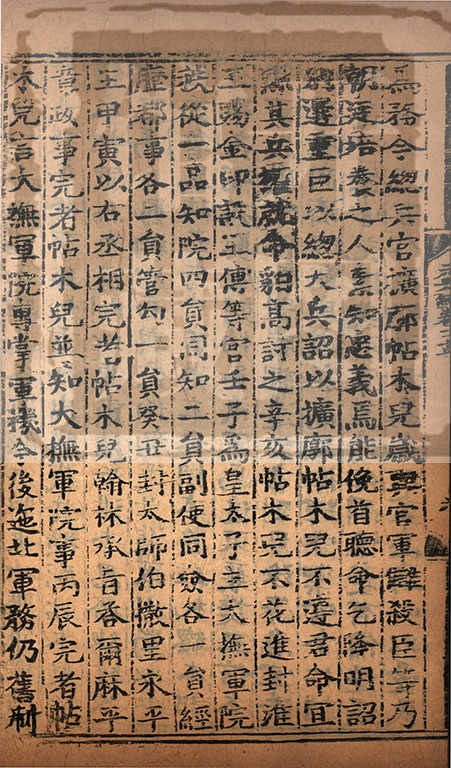 為務今總兵官擴廓帖木兒歲與官軍讎殺臣等乃
朝廷培養之人素知恩義焉能俛首聽命乞降明詔
別選重臣以總大兵詔以擴廓帖木兒不遵君命宜
黜其兵權就命豹高討之辛亥帖木兒不花進封淮
王賜金印設王傅等官壬子為皇太子立大撫軍院
秩從一品知院四員同知二員副使同僉各一員經
歷都事各二員管勾一員癸丑封太師伯撒里永平
王甲寅以右丞相完者帖木兒翰林承旨答爾麻平
章政事完者帖木兒並知大撫軍院事丙辰完者帖
木兒言大撫軍院專掌軍機今後迤北軍務仍舊制